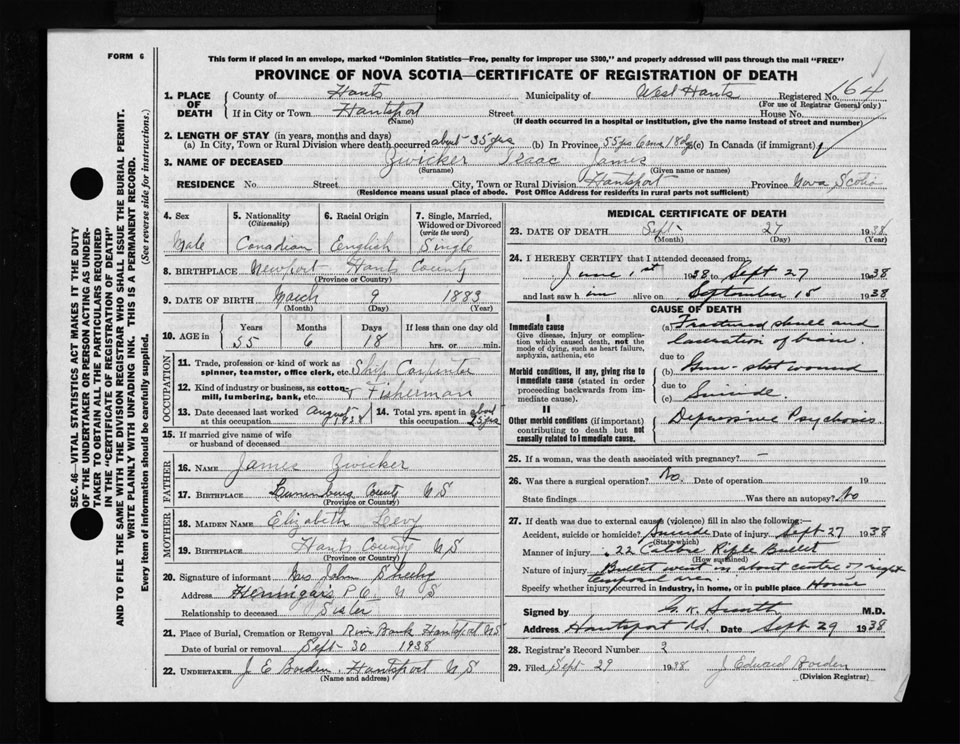 FORM 6
This form if placed in an envelope, marked "Dominion Statistics—Free, penalty for improper use $300," and properly addressed will pass through the mail "FREE"
PROVINCE OF NOVA SCOTIA—CERTIFICATE OF REGISTRATION OF DEATH
164
1. PLACE OF DEATH County of Hants Municipality of West Hants Registered No.
(For use of Registrar General only)
If in City or Town Hantsport Street House No.
(Name) (If death occurred in a hospital or institution, give the name instead of street and number)
2. LENGTH OF STAY (in years, months and days)
(a) In City, Town or Rural Division where death occurred about 35 yrs (b) In Province 55 yrs 6 ms 18 dys (c) In Canada (if immigrant)
3. NAME OF DECEASED Zwicker Isaac James
(Surname) (Given name or names)
RESIDENCE No. Street City, Town or Rural Division Hantsport Province Nova Scotia
(Residence means usual place of abode. Post Office Address for residents in rural parts not sufficient)
SEC. 46—VITAL STATISTICS ACT MAKES IT THE DUTY
OF THE UNDERTAKER OR PERSON ACTING AS UNDER-
TAKER TO OBTAIN ALL THE PARTICULARS REQUIRED
IN THE "CERTIFICATE OF REGISTRATION OF DEATH"
AND TO FILE THE SAME WITH THE DIVISION REGISTRAR WHO SHALL ISSUE THE BURIAL PERMIT.
WRITE PLAINLY WITH UNFADING INK. THIS IS A PERMANENT RECORD.
Every item of information should be carefully supplied. (See reverse side for instructions.)
4. Sex 5. Nationality (Citizenship) 6. Racial Origin 7. Single, Married, Widowed or Divorced (write the word)
Male Canadian English Single
8. BIRTHPLACE Newport Hants County
(Province or Country)
9. DATE OF BIRTH March 9 1883
(Month) (Day) (Year)
10. AGE in Years Months Days If less than one day old
55 6 18 hrs. or min.
OCCUPATION
11. Trade, profession or kind of work as spinner, teamster, office clerk, etc. Ship Carpenter
12. Kind of industry or business, as cotton-mill, lumbering, bank, etc. & Fisherman
13. Date deceased last worked at this occupation August 1938 14. Total yrs. spent in this occupation about 25 yrs
15. If married give name of wife or husband of deceased
FATHER
16. NAME James Zwicker
17. BIRTHPLACE Lunenburg County N S
(Province or Country)
MOTHER
18. MAIDEN NAME Elizabeth Levy
19. BIRTHPLACE Hants County N S
(Province or Country)
20. Signature of informant Mrs John Sheehy
Address P.O. N S
Relationship to deceased Sister
21. Place of Burial, Cremation or Removal River Bank Hantsport N S
Date of burial or removal Sept 30 1938
22. UNDERTAKER J E Borden. Hantsport N S
(Name and address)
MEDICAL CERTIFICATE OF DEATH
23. DATE OF DEATH Sept 27 1938
(Month) (Day) (Year)
24. I HEREBY CERTIFY that I attended deceased from
June 1st 1938 to Sept 27 1938
and last saw him alive on September 15 1938
CAUSE OF DEATH
I
Immediate cause
Give disease, injury or complication which caused death, not the mode of dying, such as heart failure, asphyxia, asthenia, etc
(a) Fractured skull and
laceration of brain.
due to
Morbid conditions, if any, giving rise to immediate cause (stated in order proceeding backwards from immediate cause).
(b) Gun-shot wound
due to
(c) Suicide.
II
Other morbid conditions (if important) contributing to death but not causally related to immediate cause.
Depressive Psychosis.
25. If a woman, was the death associated with pregnancy? —
26. Was there a surgical operation? No. Date of operation 19
State findings Was there an autopsy? No
27. If death was due to external causes (violence) fill in also the following:—
Accident, suicide or homicide? Suicide Date of injury Sept 27 1938
(State which)
Manner of injury .22 Calibre Rifle Bullet
(How sustained)
Nature of injury Bullet went in about centre of right
temporal area.
Specify whether injury occurred in industry, in home, or in public place Home
Signed by G. K. Smith M.D.
Address Hantsport N.S. Date Sept 29 1938
28. Registrar's Record Number 2
29. Filed Sept 29 1938 J Edward Borden
(Division Registrar)